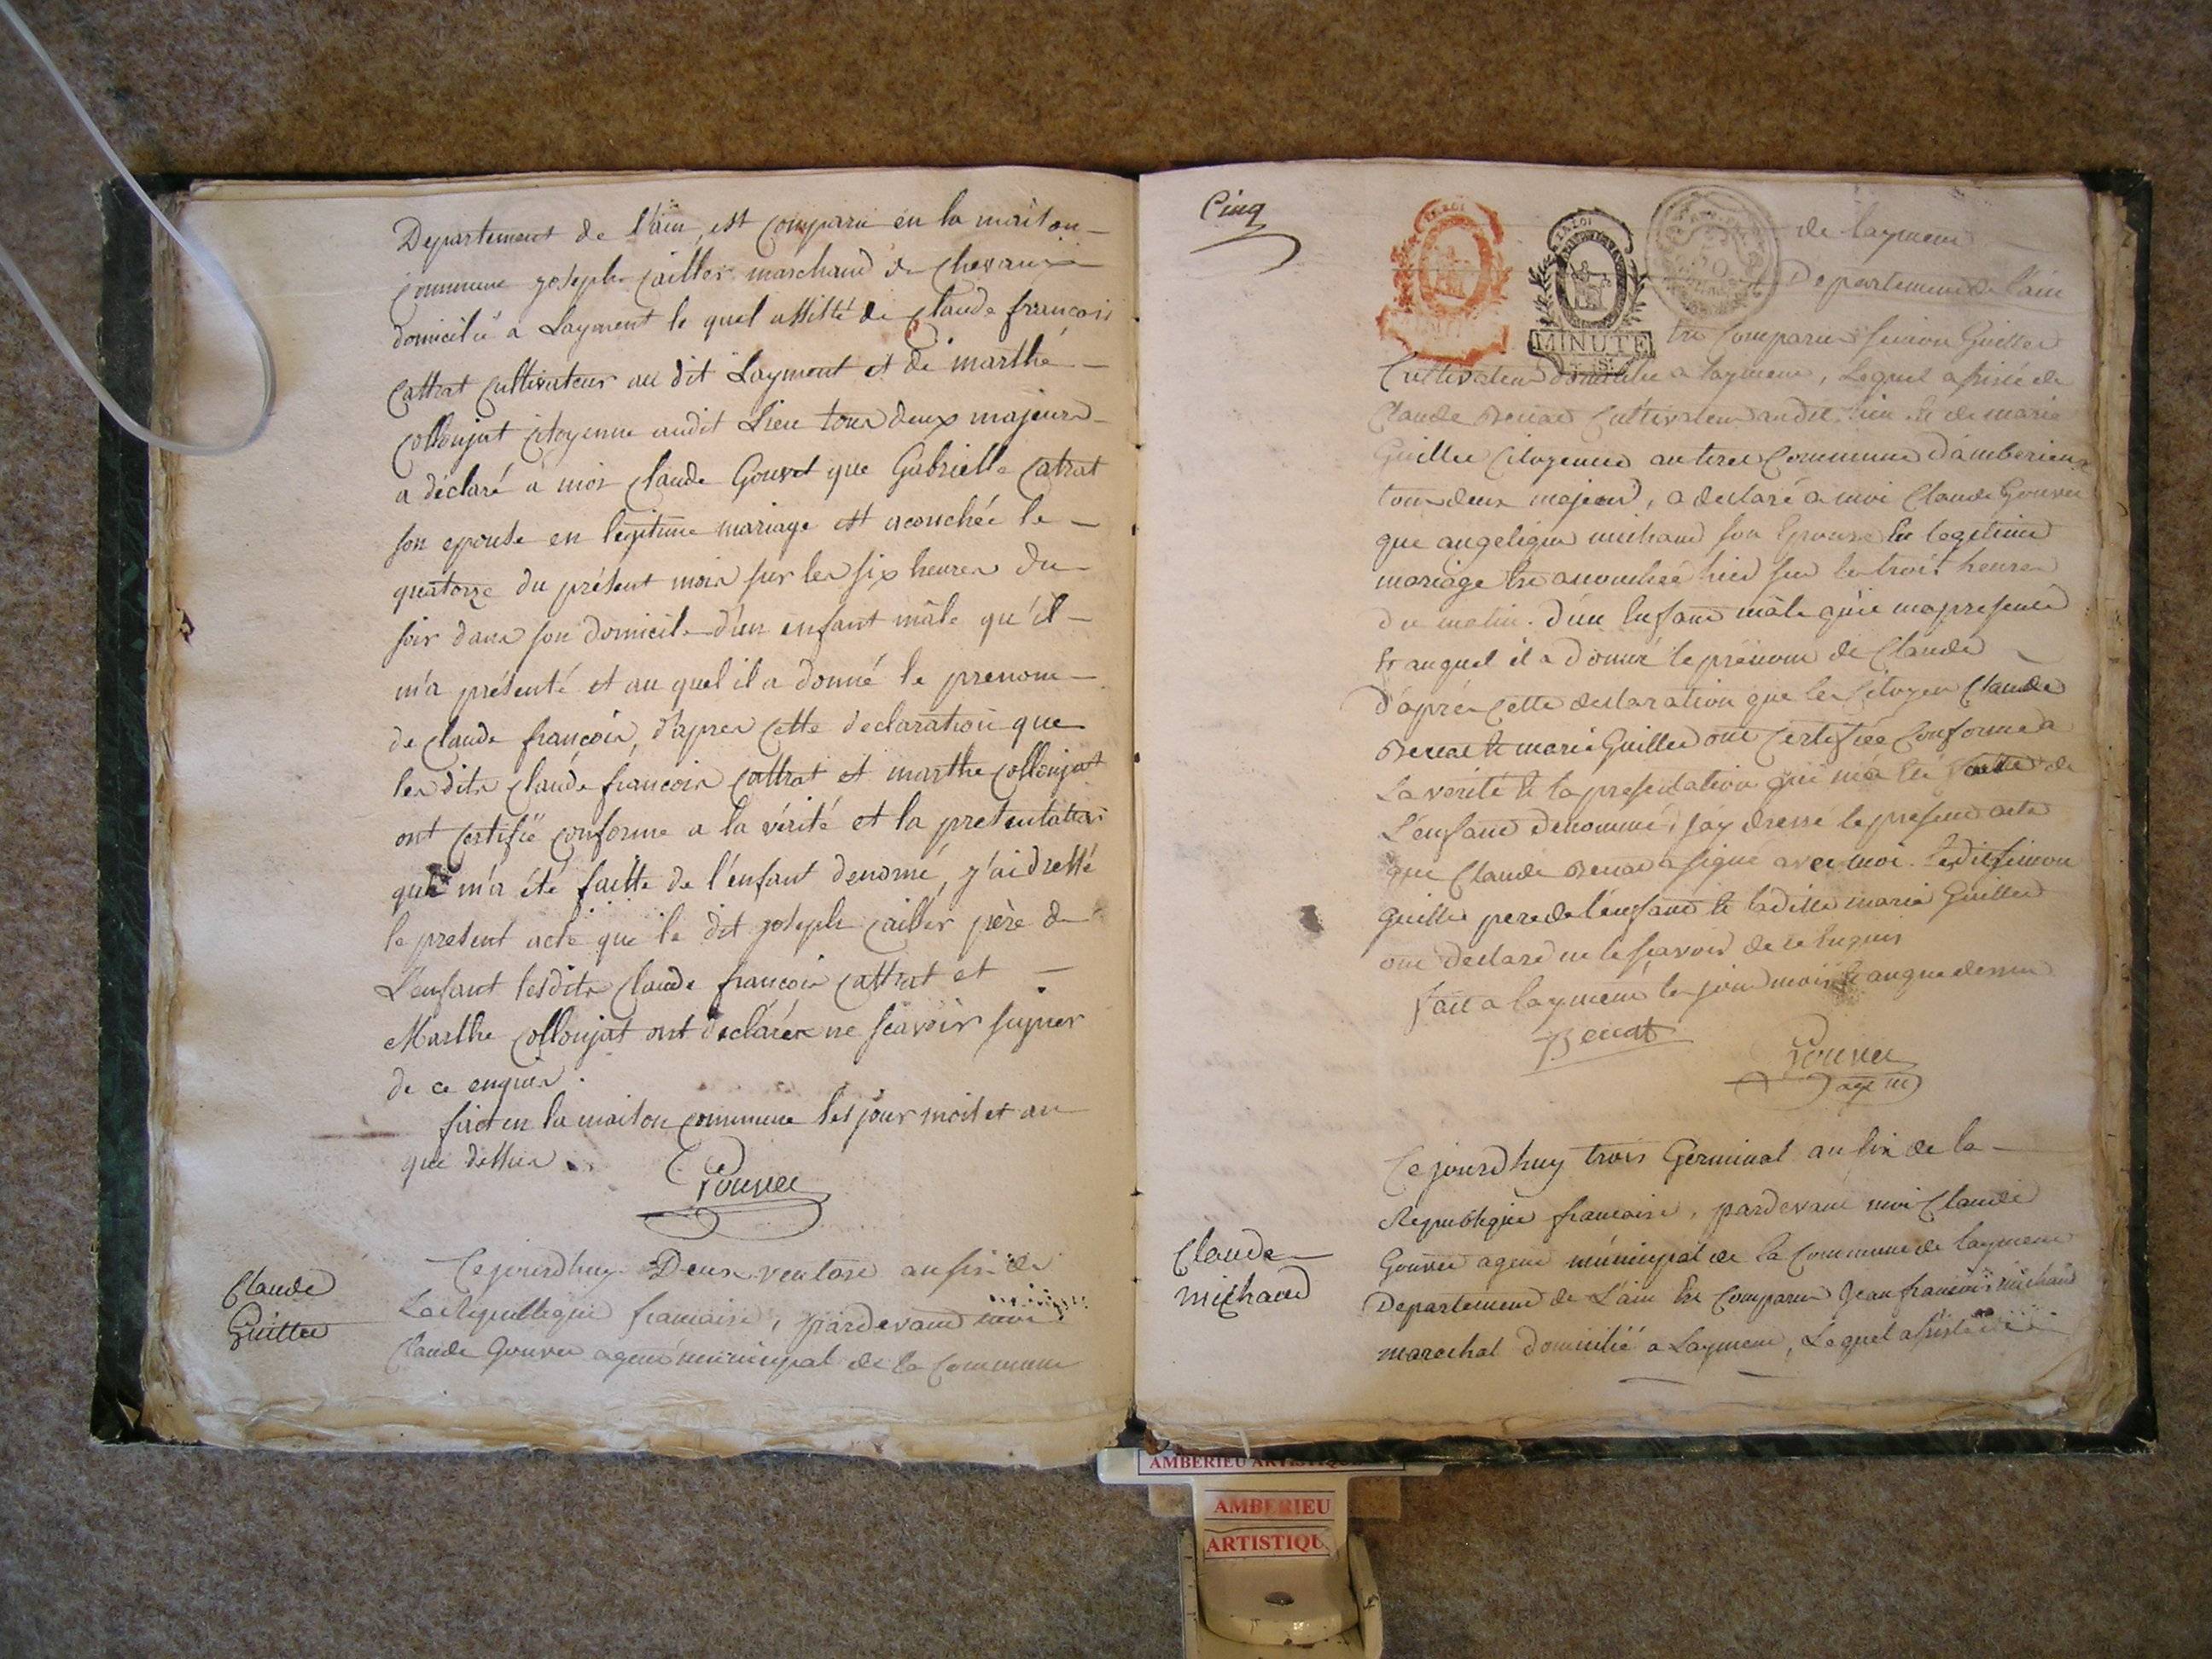 Departement de l'ain, est comparu en la maison
commune joseph cailler marchand de chevaux
domicilié a Layment le quel assisté de Claude francois
Cattrat Cultivateur au dit Layment et de marthe
Collonjat citoyenne audit Lieu tous deux majeurs
a déclaré à moi Claude Gouvet que Gabrielle Catrat
son epouse en legitime mariage est acouchée le
quatorze du présent mois sur les six heures du
soir dans son domicile d'un enfant mâle qu'il
m'a présenté et au quel il a donné le prenom
de Claude françois, d'apres cette declaration que
les dits Claude francois Cattrat et marthe Collonjat
ont certifié conforme a la vérité et la presentation
qui m'a été faitte de l'enfant denomé, j'ai dressé
le present acte que le dit joseph cailler père de
L'enfant lesdits Claude francois Cattrat et
Marthe Collonjat ont déclarés ne scavoir signer
de ce enquis.
fait en la maison commune les jour mois et an
que dessus.
C. Gouvet
Claude
Guillet
Ce jourdhuy Deux ventose an six de
La Republique francaise, pardevant moi
Claude Gouvet agent municipal de la Commune
Cinq
LA LOI
MINUTE
de layment
Departement de l'ain
Est Comparu simon Guillet
Cultivateur domicilie a layment, Lequel assisté de
Claude Benat Cultivateur audit lieu et de marie
Guillet Citoyenne Commune d'amberieux
tous deux majeurs, a declaré a moi Claude Gouvet
que angeligue michaud son Epouse En legitime
mariage Est acouchée hier sur les trois heures
du matin. d'un Enfant mâle qu'il m'a presenté
Et auquel il a donné le prénom de Claude
d'aprés cette declaration que les Citoyen Claude
Benat Et marie Guillet ont Certifiée Conforme a
La verité Et la presentation qui m'a Eté faitte de
L'enfant denommé, j'ay dressé le present acte
que Claude Benat a signé avec moi. Ledit simon
Guillet pere de l'enfant Et ladite marie Guillet
ont declaré ne le scavoir de ce Enquis
fait a layment les jour mois Et an que dessus
Benat
Gouvet
agent
Claude
michaud
Ce jourdhuy trois Germinal an six de la
Republique francaise, pardevant moi Claude
Gouvet agent municipal de la Commune de layment
Departement de L'ain Est Comparu Jean francois michaud
marechal domicilié a Layment, Lequel assisté de
AMBERIEU ARTISTIQUE
AMBERIEU
ARTISTIQU